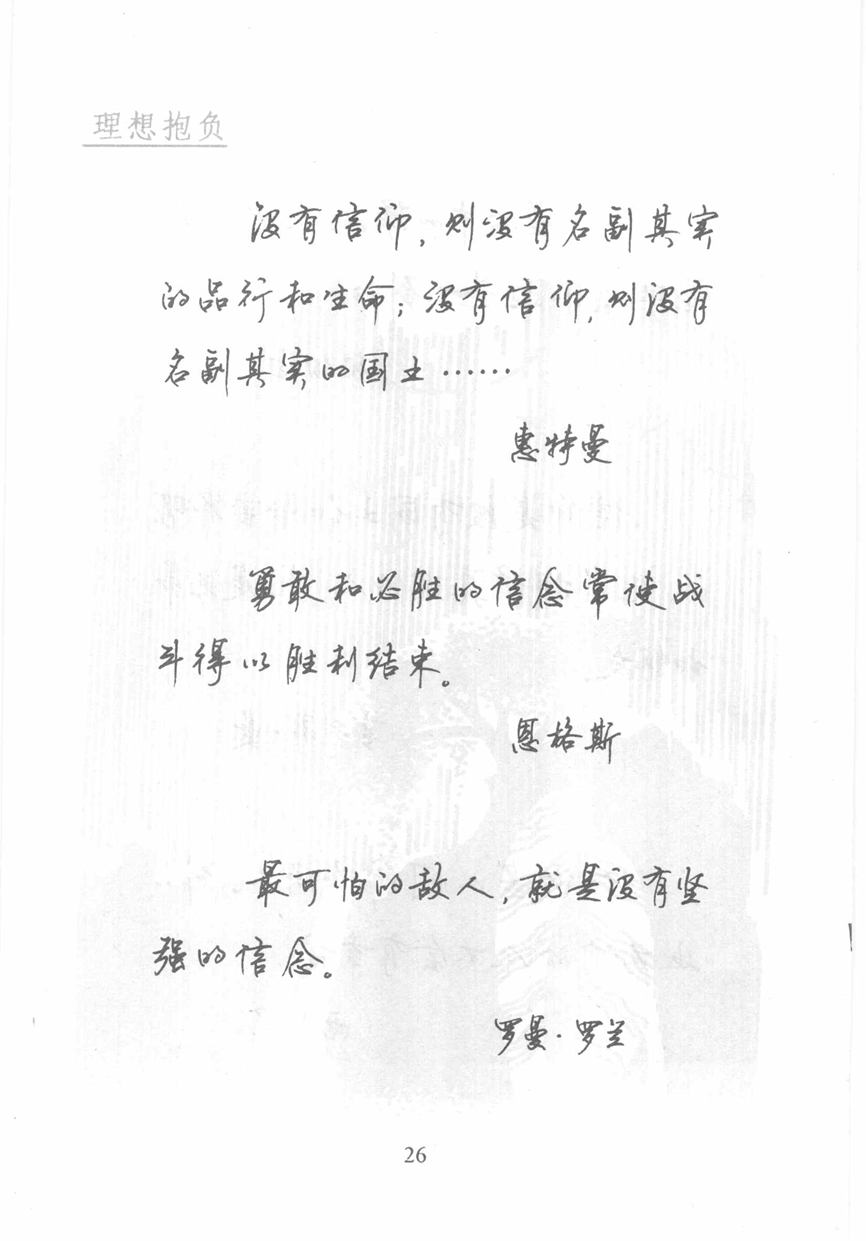 理想抱负
没有信仰，则没有名副其实
的品行和生命；没有信仰，则没有
名副其实的国土……
惠特曼
勇敢和必胜的信念常使战
斗得以胜利结束。
恩格斯
最可怕的敌人，就是没有坚
强的信念。
罗曼·罗兰
26